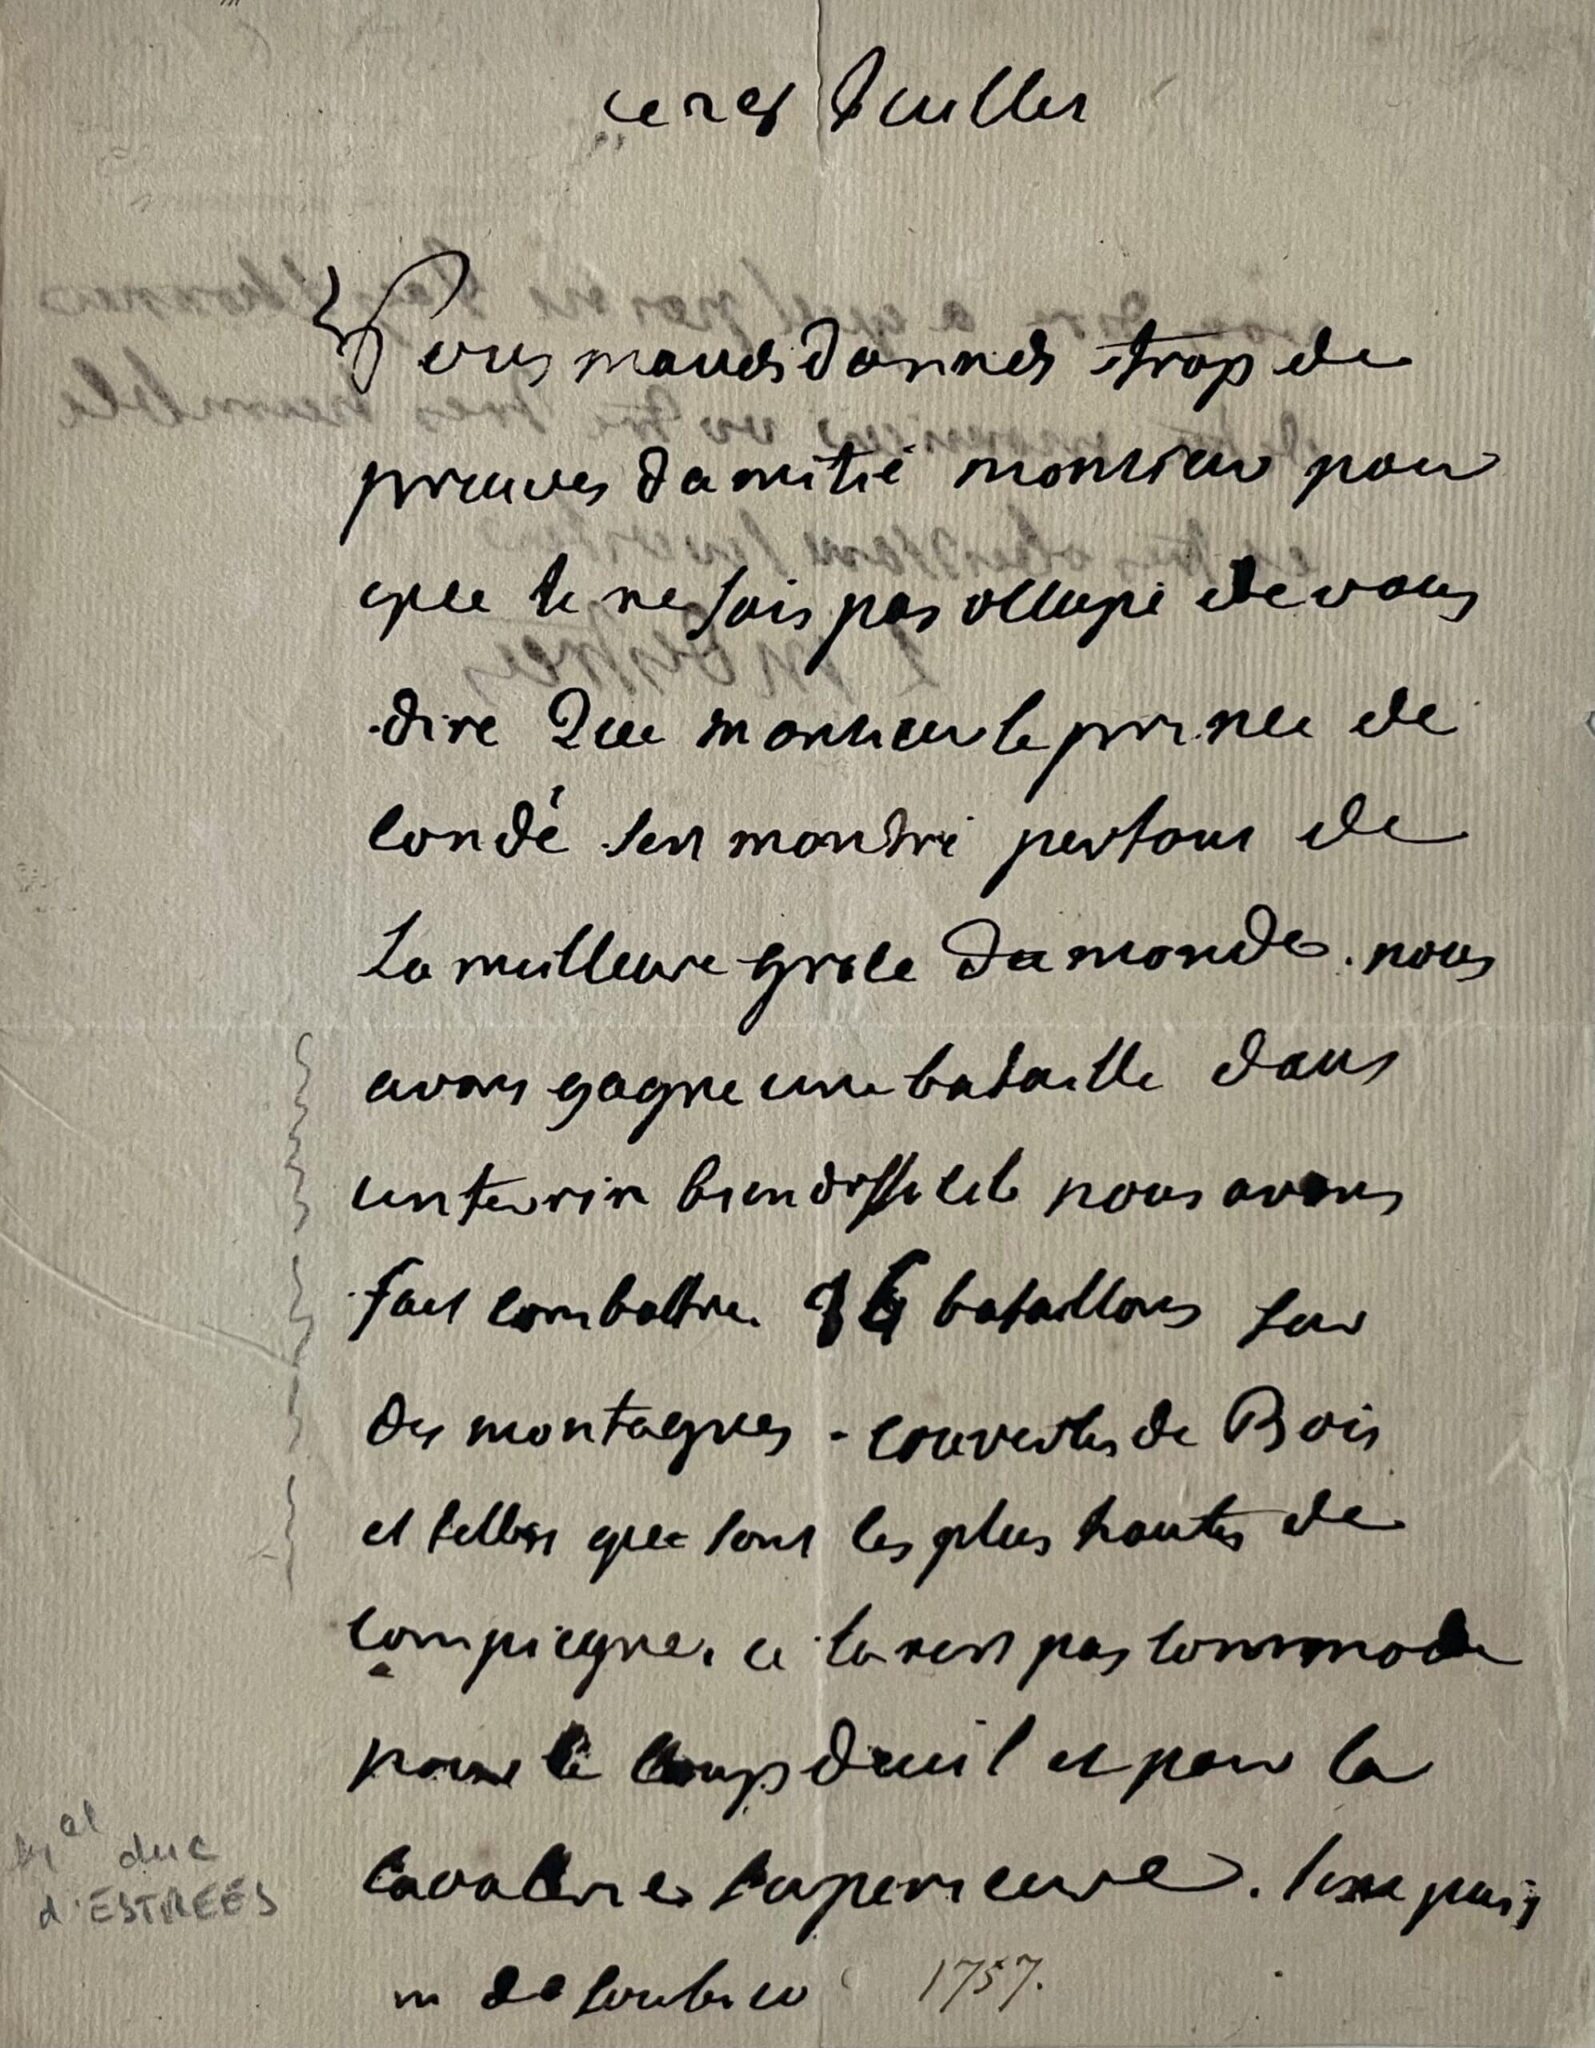 ce 28 Juillet
Vous maves donnes trop de
preuves damitié monsieur pour
que je ne sois pas occupé de vous
dire Que monsieur le prince de
condé sest montré partout de
La meilleure grace du monde. nous
avons gagne une bataille dans
un terrin bien difficile nous avons
fait combattre 16 bataillons sur
des montagnes couvertes de Bois
et telles que sont les plus hautes de
compiegne. cela nest pas commode
pour le coup deuil et pour la
cavalerie superieure. je ne puis
m de soubise 1757.
Mal duc
d'ESTREES